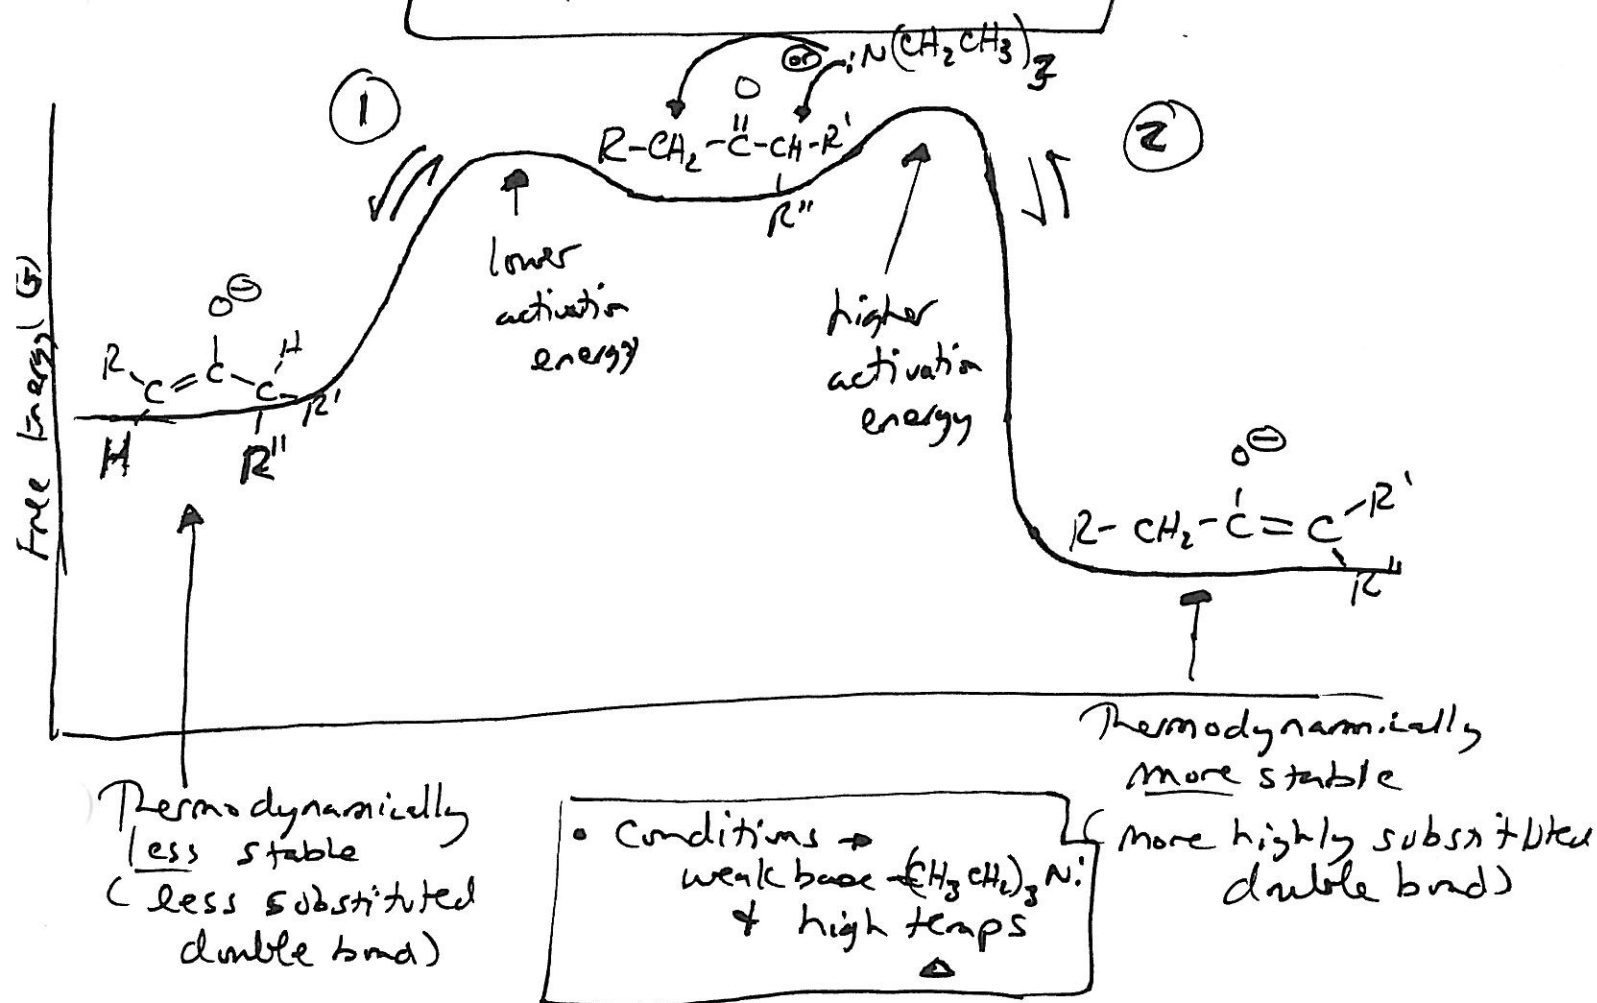 (or)
:N(CH₂CH₃)₃
1
O
||
R-CH₂-C-CH-R'
R"
2
lower
activation
energy
higher
activation
energy
Free Energy (G)
O⊖
R
C=C-C
H
R'
H
R"
O⊖
R-CH₂-C=C
R'
R"
Thermodynamically
less stable
(less substituted
double bond)
• Conditions →
weak base -(CH₃CH₂)₃N:
& high temps
Thermodynamically
more stable
(more highly substituted
double bond)